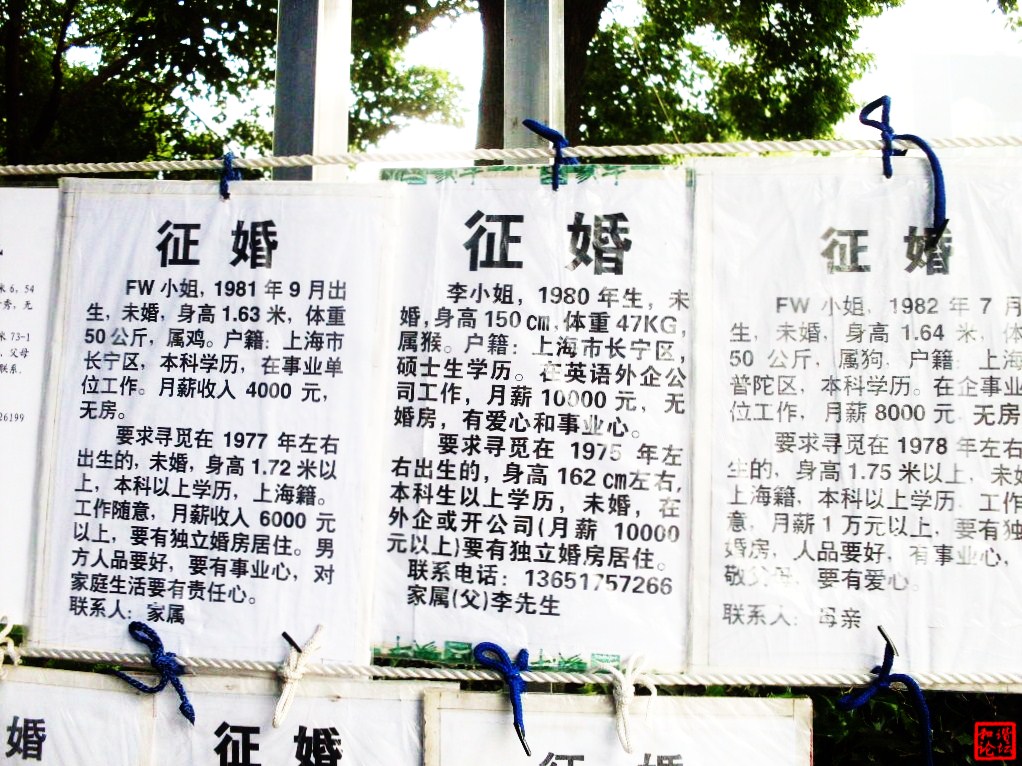 米 6, 54
秀, 无
米 73-1
, 父母
联系.
26199
征 婚
FW 小姐, 1981 年 9 月出
生, 未婚, 身高 1.63 米, 体重
50 公斤, 属鸡。户籍: 上海市
长宁区, 本科学历, 在事业单
位工作。月薪收入 4000 元,
无房。
要求寻觅在 1977 年左右
出生的, 未婚, 身高 1.72 米以
上, 本科以上学历, 上海籍。
工作随意, 月薪收入 6000 元
以上, 要有独立婚房居住。男
方人品要好, 要有事业心, 对
家庭生活要有责任心。
联系人: 家属
征 婚
李小姐, 1980 年生, 未
婚, 身高 150 cm, 体重 47KG,
属猴。户籍: 上海市长宁区,
硕士生学历。在英语外企公
司工作, 月薪 10000 元, 无
婚房, 有爱心和事业心。
要求寻觅在 1975 年左
右出生的, 身高 162 cm左右,
本科生以上学历, 未婚, 在
外企或开公司(月薪 10000
元以上)要有独立婚房居住。
联系电话: 13651757266
家属(父)李先生
征 婚
FW 小姐, 1982 年 7 月
生, 未婚, 身高 1.64 米, 体
50 公斤, 属狗, 户籍: 上海
普陀区, 本科学历。在企事业
位工作, 月薪 8000 元, 无房
要求寻觅在 1978 年左右
生的, 身高 1.75 米以上, 未婚
上海籍, 本科以上学历. 工作
意, 月薪 1 万元以上, 要有独
婚房, 人品要好, 有事业心,
敬父母, 要有爱心。
联系人: 母亲
婚
征 婚
征 婚
和谐
论坛